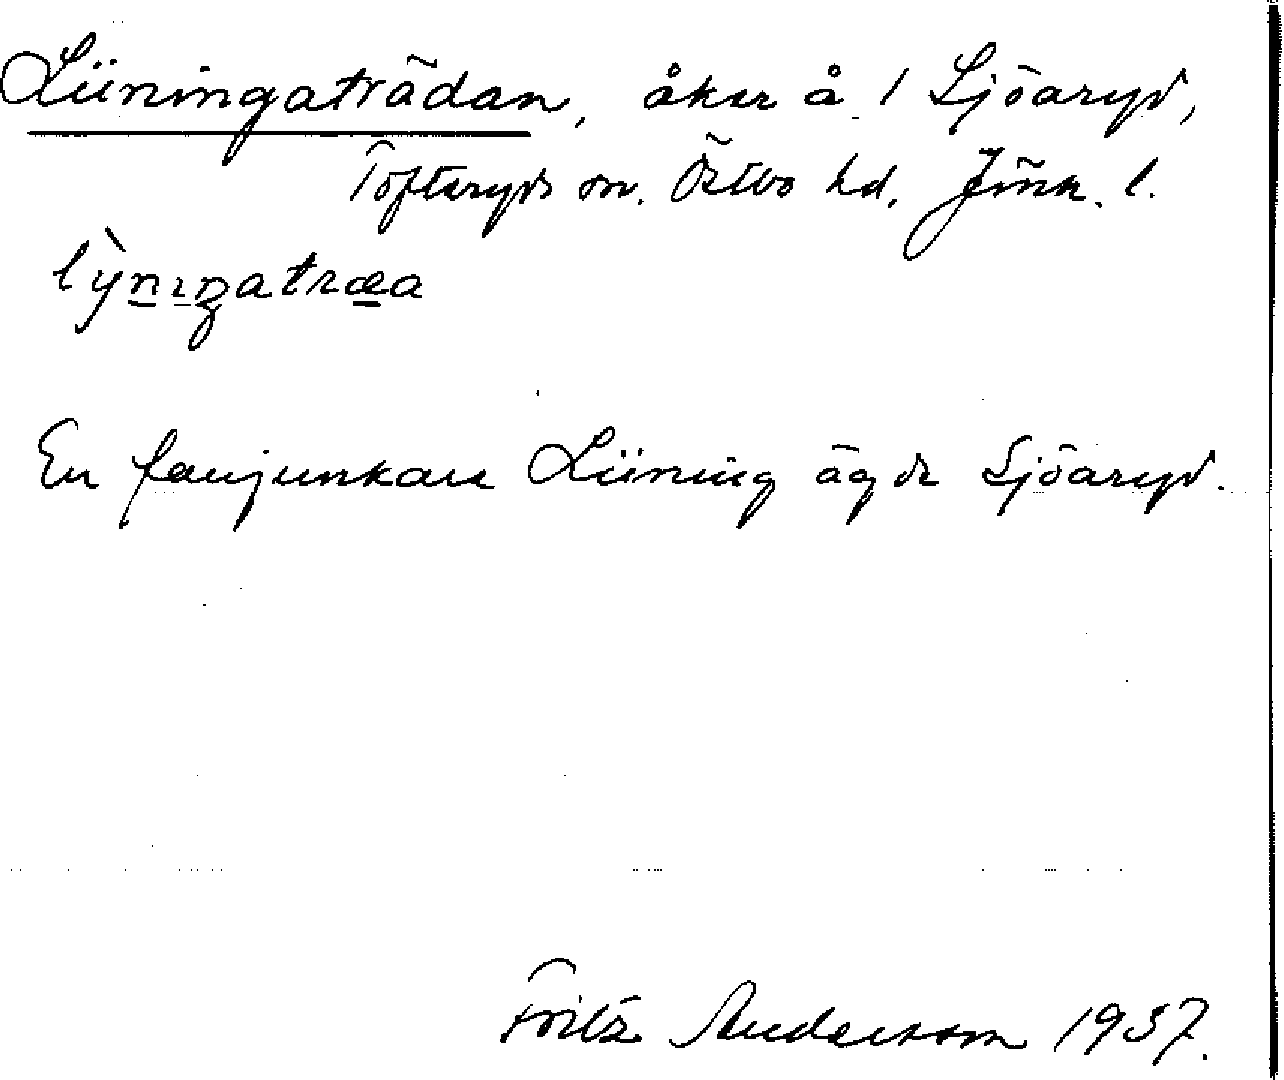 Lüningaträdan, åker å 1 Sjöaryd,
Tofteryds sn. Östbo hd. Jönk. l.
lỳniŋatræa
En fanjunkare Lüning ägde Sjöaryd.
Fritz Anderson 1937.